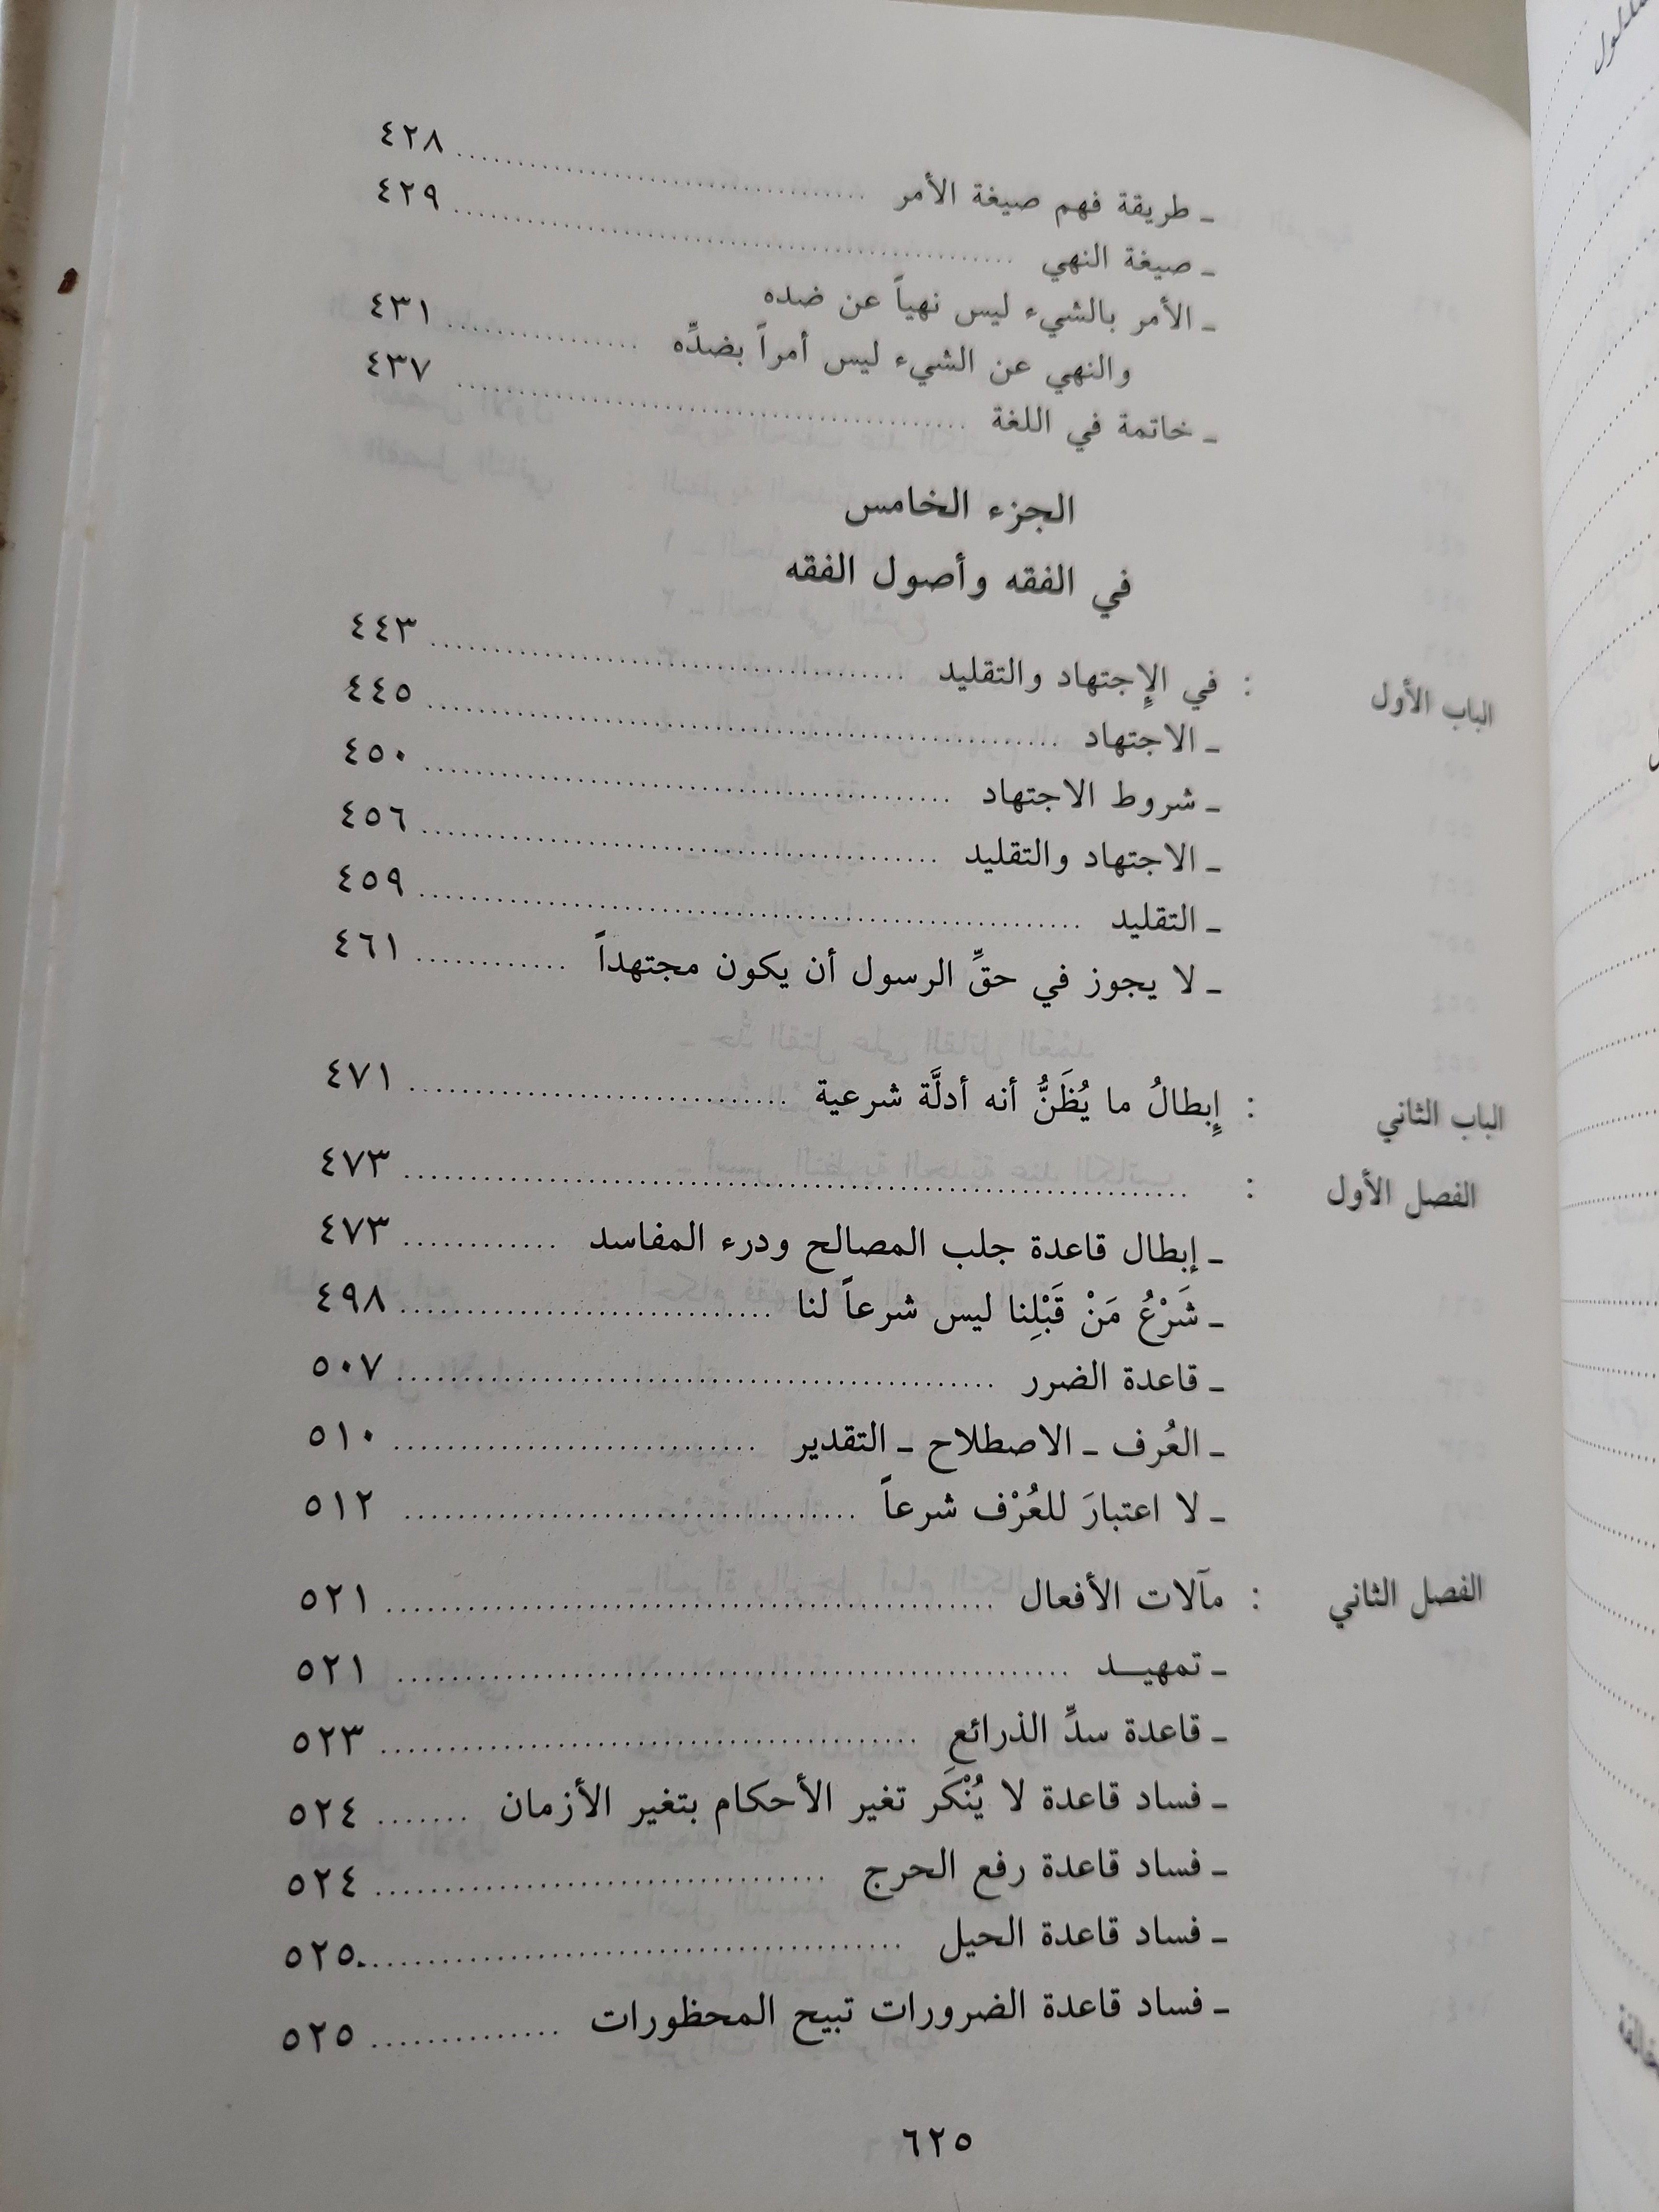 ـ طريقة فهم صيغة الأمر ........ ٤٢٨
ـ صيغة النهي ........ ٤٢٩
ـ الأمر بالشيء ليس نهياً عن ضده
والنهي عن الشيء ليس أمراً بضدِّه ........ ٤٣١
ـ خاتمة في اللغة ........ ٤٣٧
الجزء الخامس
في الفقه وأصول الفقه
الباب الأول : في الإِجتهاد والتقليد ........ ٤٤٣
ـ الاجتهاد ........ ٤٤٥
ـ شروط الاجتهاد ........ ٤٥٠
ـ الاجتهاد والتقليد ........ ٤٥٦
ـ التقليد ........ ٤٥٩
ـ لا يجوز في حقِّ الرسول أن يكون مجتهداً ........ ٤٦١
الباب الثاني : إِبطالُ ما يُظَنُّ أنه أدلَّة شرعية ........ ٤٧١
الفصل الأول : ........ ٤٧٣
ـ إبطال قاعدة جلب المصالح ودرء المفاسد ........ ٤٧٣
ـ شَرْعُ مَنْ قَبْلِنا ليس شرعاً لنا ........ ٤٩٨
ـ قاعدة الضرر ........ ٥٠٧
ـ العُرف ـ الاصطلاح ـ التقدير ........ ٥١٠
ـ لا اعتبارَ للعُرْف شرعاً ........ ٥١٢
الفصل الثاني : مآلات الأفعال ........ ٥٢١
ـ تمهيــد ........ ٥٢١
ـ قاعدة سدِّ الذرائع ........ ٥٢٣
ـ فساد قاعدة لا يُنْكَر تغير الأحكام بتغير الأزمان ........ ٥٢٤
ـ فساد قاعدة رفع الحرج ........ ٥٢٤
ـ فساد قاعدة الحيل ........ ٥٢٥
ـ فساد قاعدة الضرورات تبيح المحظورات ........ ٥٢٥
٦٢٥